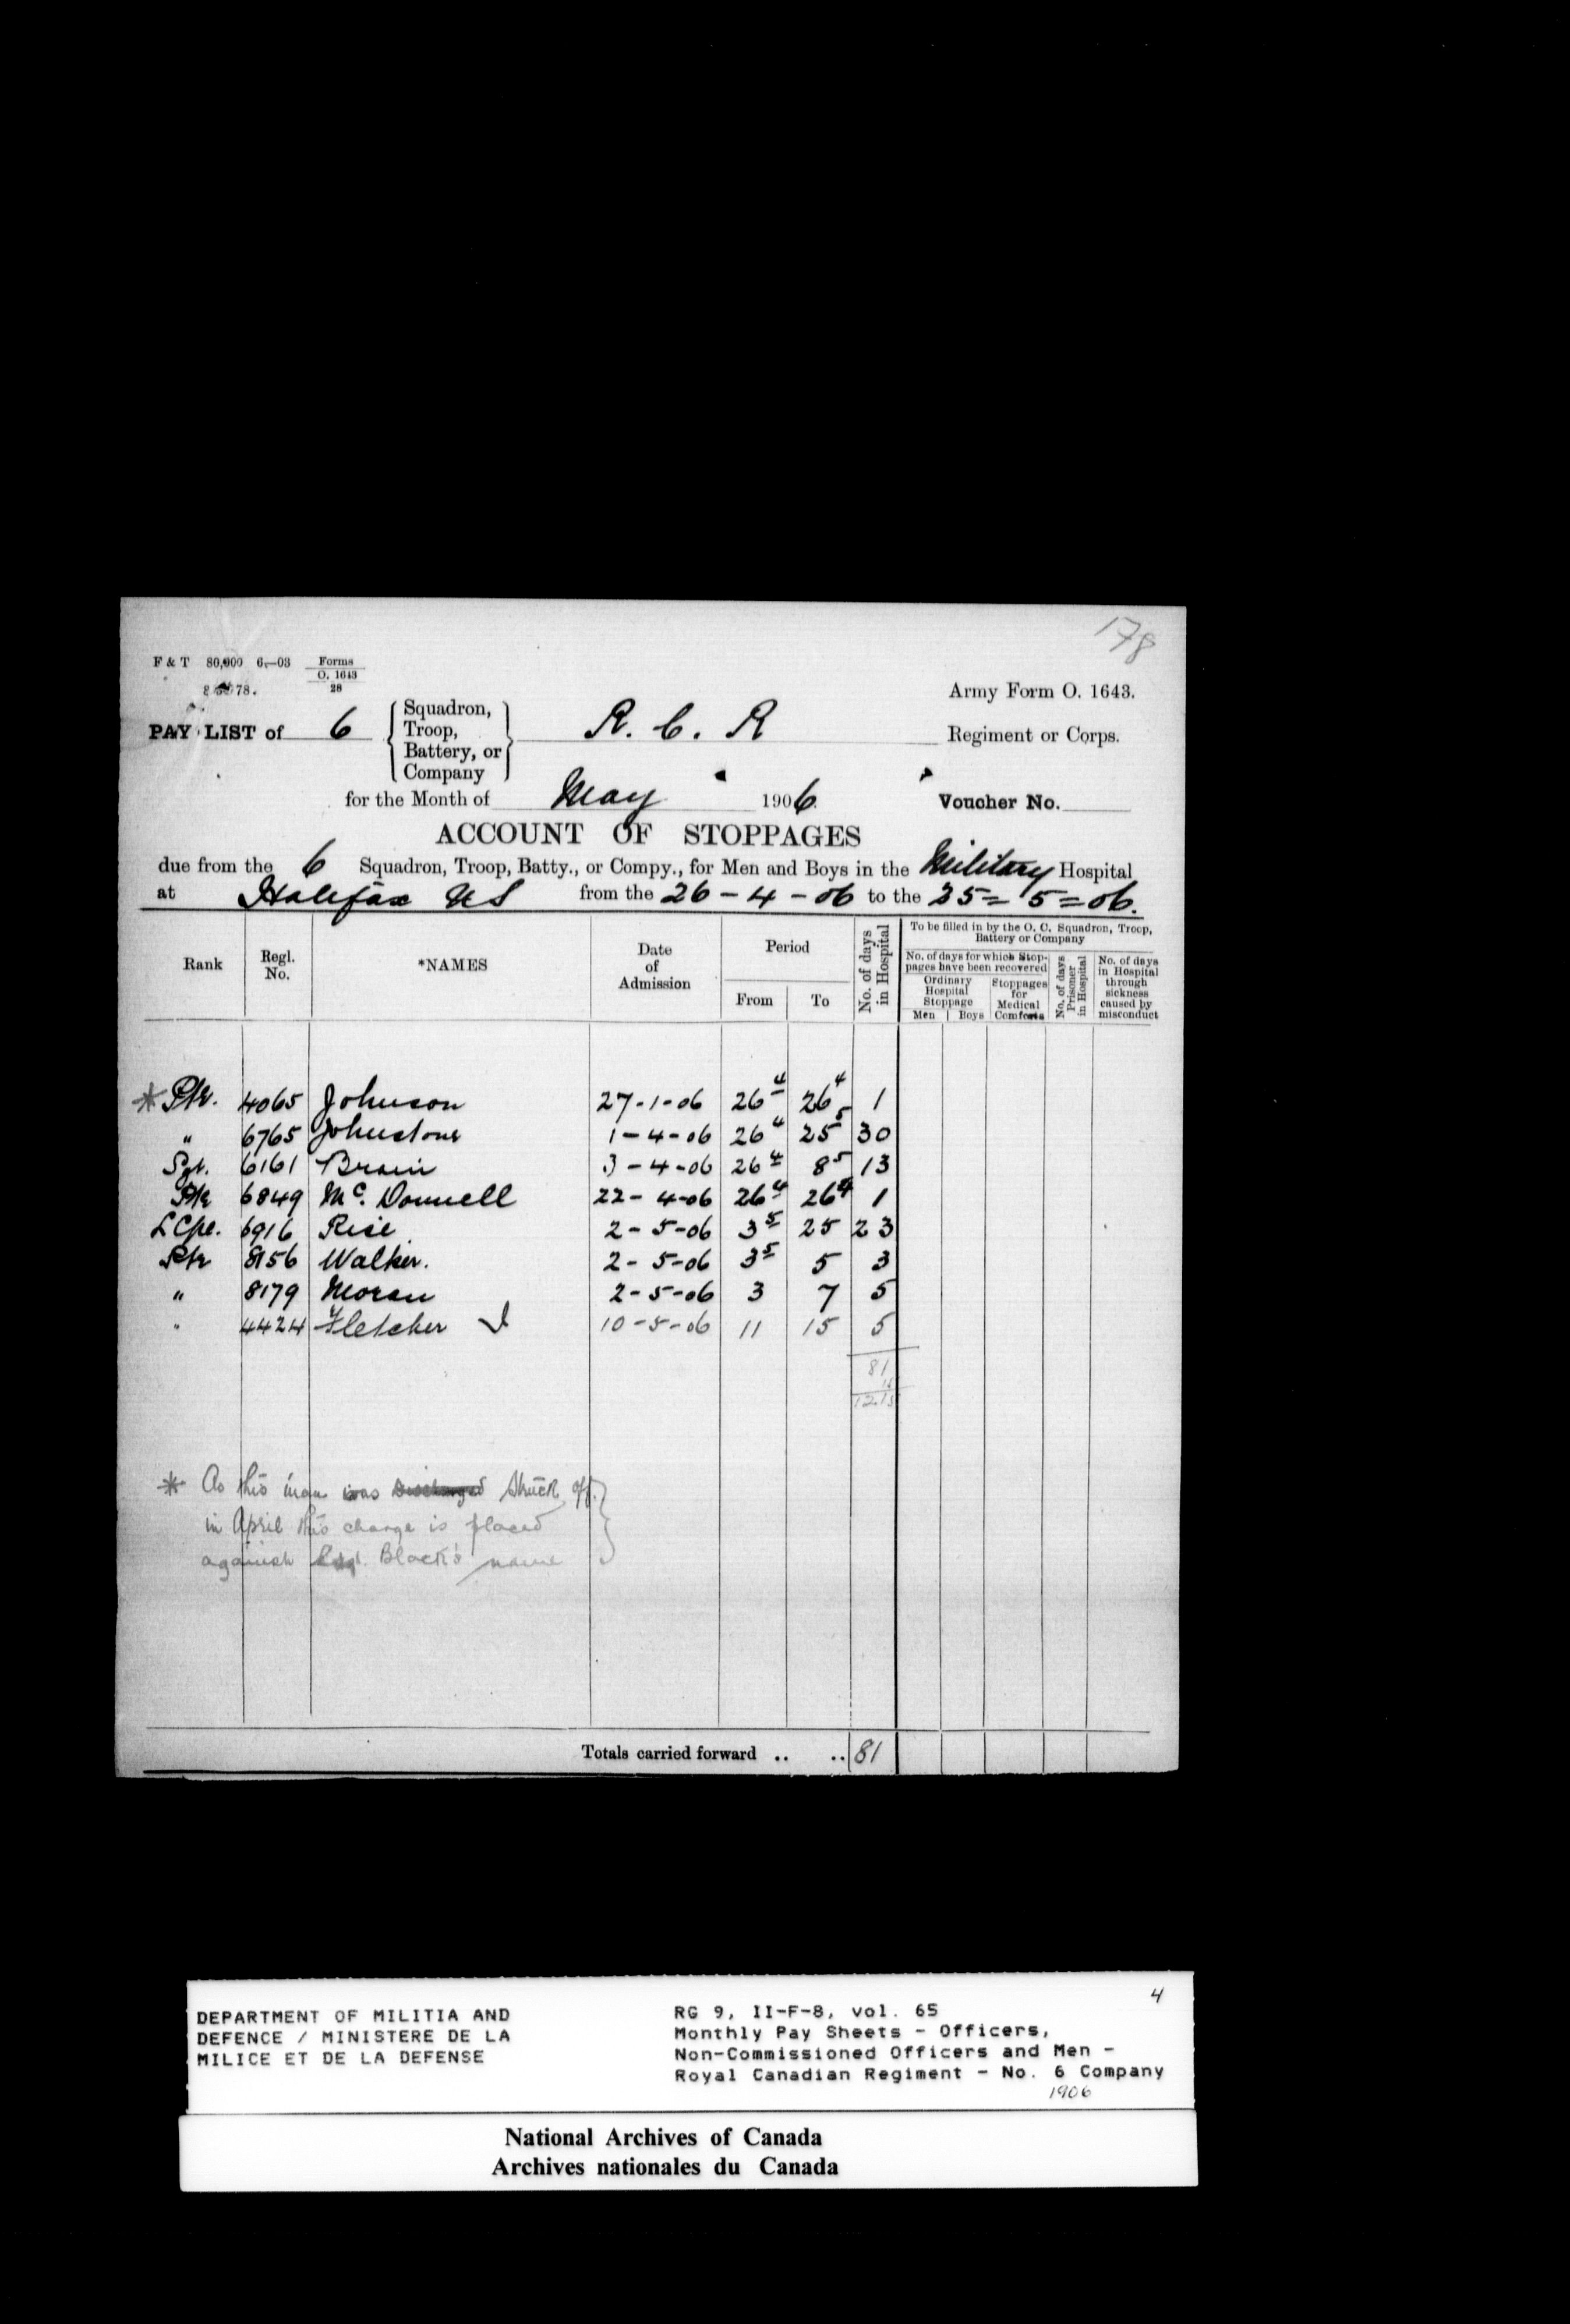 178
F & T 80,000 6—03 Forms
O. 1643
28
Army Form O. 1643.
PAY LIST of 6 { Squadron, Troop, Battery, or Company } R. C. R Regiment or Corps.
for the Month of May 1906. Voucher No.
ACCOUNT OF STOPPAGES
due from the 6 Squadron, Troop, Batty., or Compy., for Men and Boys in the Military Hospital
at Halifax NS from the 26 - 4 - 06 to the 25 = 5 = 06.
Rank Regl. No. *NAMES Date of Admission Period From To No. of days in Hospital
To be filled in by the O. C. Squadron, Troop, Battery or Company
No. of days for which Stoppages have been recovered
Ordinary Hospital Stoppage Men Boys
Stoppages for Medical Comforts
No. of days Prisoner in Hospital
No. of days in Hospital through sickness caused by misconduct
* Pte. 4065 Johnson 27-1-06 26 4 26 4 1
" 6765 Johnstone 1-4-06 26 4 25 5 30
Sgt. 6161 Brain 3-4-06 26 4 8 5 13
Pte 6849 Mc. Donnell 22-4-06 26 4 26 4 1
L Cpl. 6916 Rise 2-5-06 3 5 25 23
Pte 8156 Walker. 2-5-06 3 5 5 3
" 8179 Moran 2-5-06 3 7 5
" 4424 Fletcher 10-5-06 11 15 5
81
15
12.15
* As this man was Discharged Struck off.
in April this charge is placed
against Black's name
Totals carried forward .. .. 81
4
DEPARTMENT OF MILITIA AND
DEFENCE / MINISTERE DE LA
MILICE ET DE LA DEFENSE
RG 9, II-F-8, vol. 65
Monthly Pay Sheets - Officers,
Non-Commissioned Officers and Men -
Royal Canadian Regiment - No. 6 Company
1906
National Archives of Canada
Archives nationales du Canada